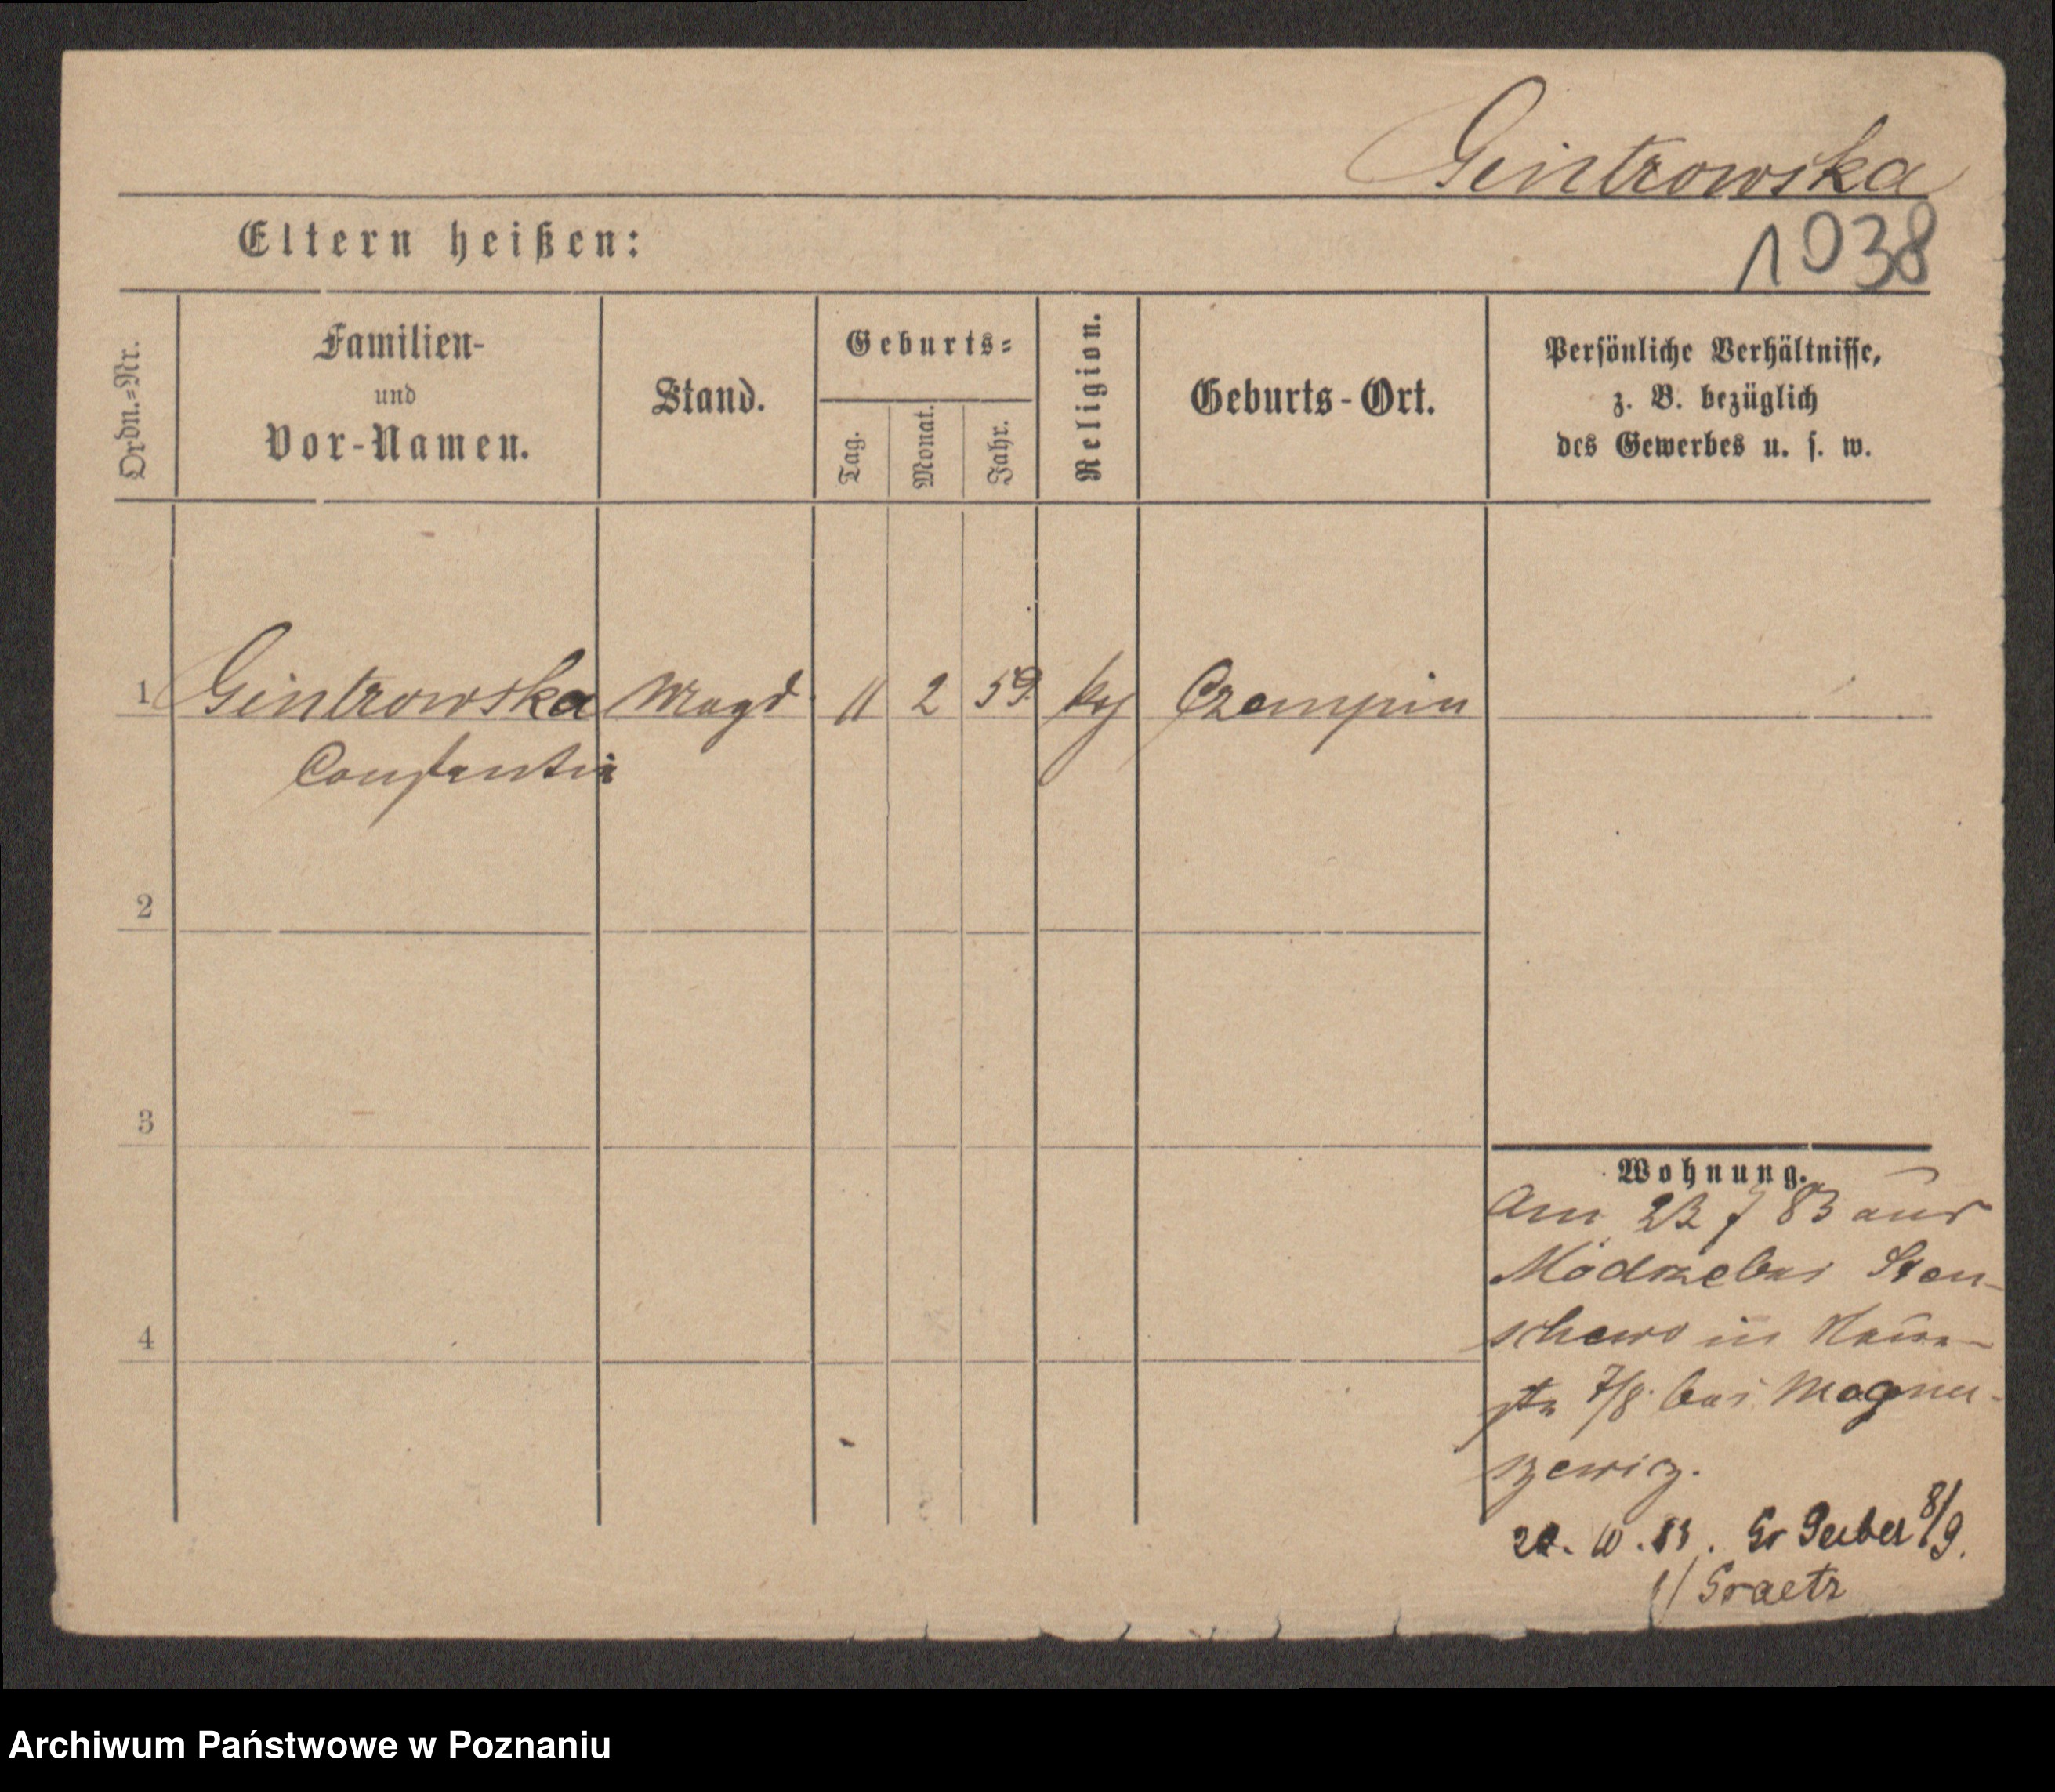 Gintrowska
1038
Eltern heißen:
Ordn.=Nr.
Familien-
und
Vor-Namen.
Stand.
Geburts=
Tag.
Monat.
Jahr.
Religion.
Geburts-Ort.
Persönliche Verhältnisse,
z. B. bezüglich
des Gewerbes u. s. w.
1 Gintrowska Magd 11 2 59. Czempin
Constantia
2
3
Wohnung.
Am 23 7 83 aus
bei Sten-
schewo in
4
7/8. bei Magnu-
szewicz.
10. 83. Gr Gerber 8/9.
Graetz
Archiwum Państwowe w Poznaniu